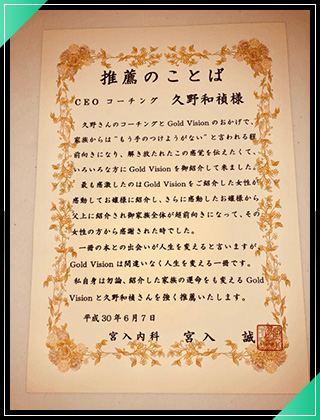 推薦のことば
CEO コーチング 久野和禎様
久野さんのコーチングとGold Visionのおかげで、
家族からは“もう手のつけようがない”と言われる超
前向きになり、解き放たれたこの感覚を伝えたくて、
いろいろな方にGold Visionを御紹介して来ました。
最も感激したのはGold Visionをご紹介した女性が
感動してお嬢様に紹介し、さらに感動したお嬢様から
父上に紹介され御家族全体が超前向きになって、その
女性の方から感謝された時でした。
一冊の本との出会いが人生を変えると言いますが
Gold Visionは間違いなく人生を変える一冊です。
私自身は勿論、紹介した家族の運命をも変えるGold
Visionと久野和禎さんを強く推薦いたします。
平成30年6月7日
宮入内科 宮入 誠